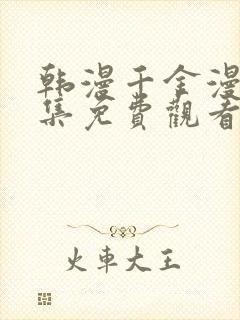 韩漫千金漫
集免費觀看
火車大王